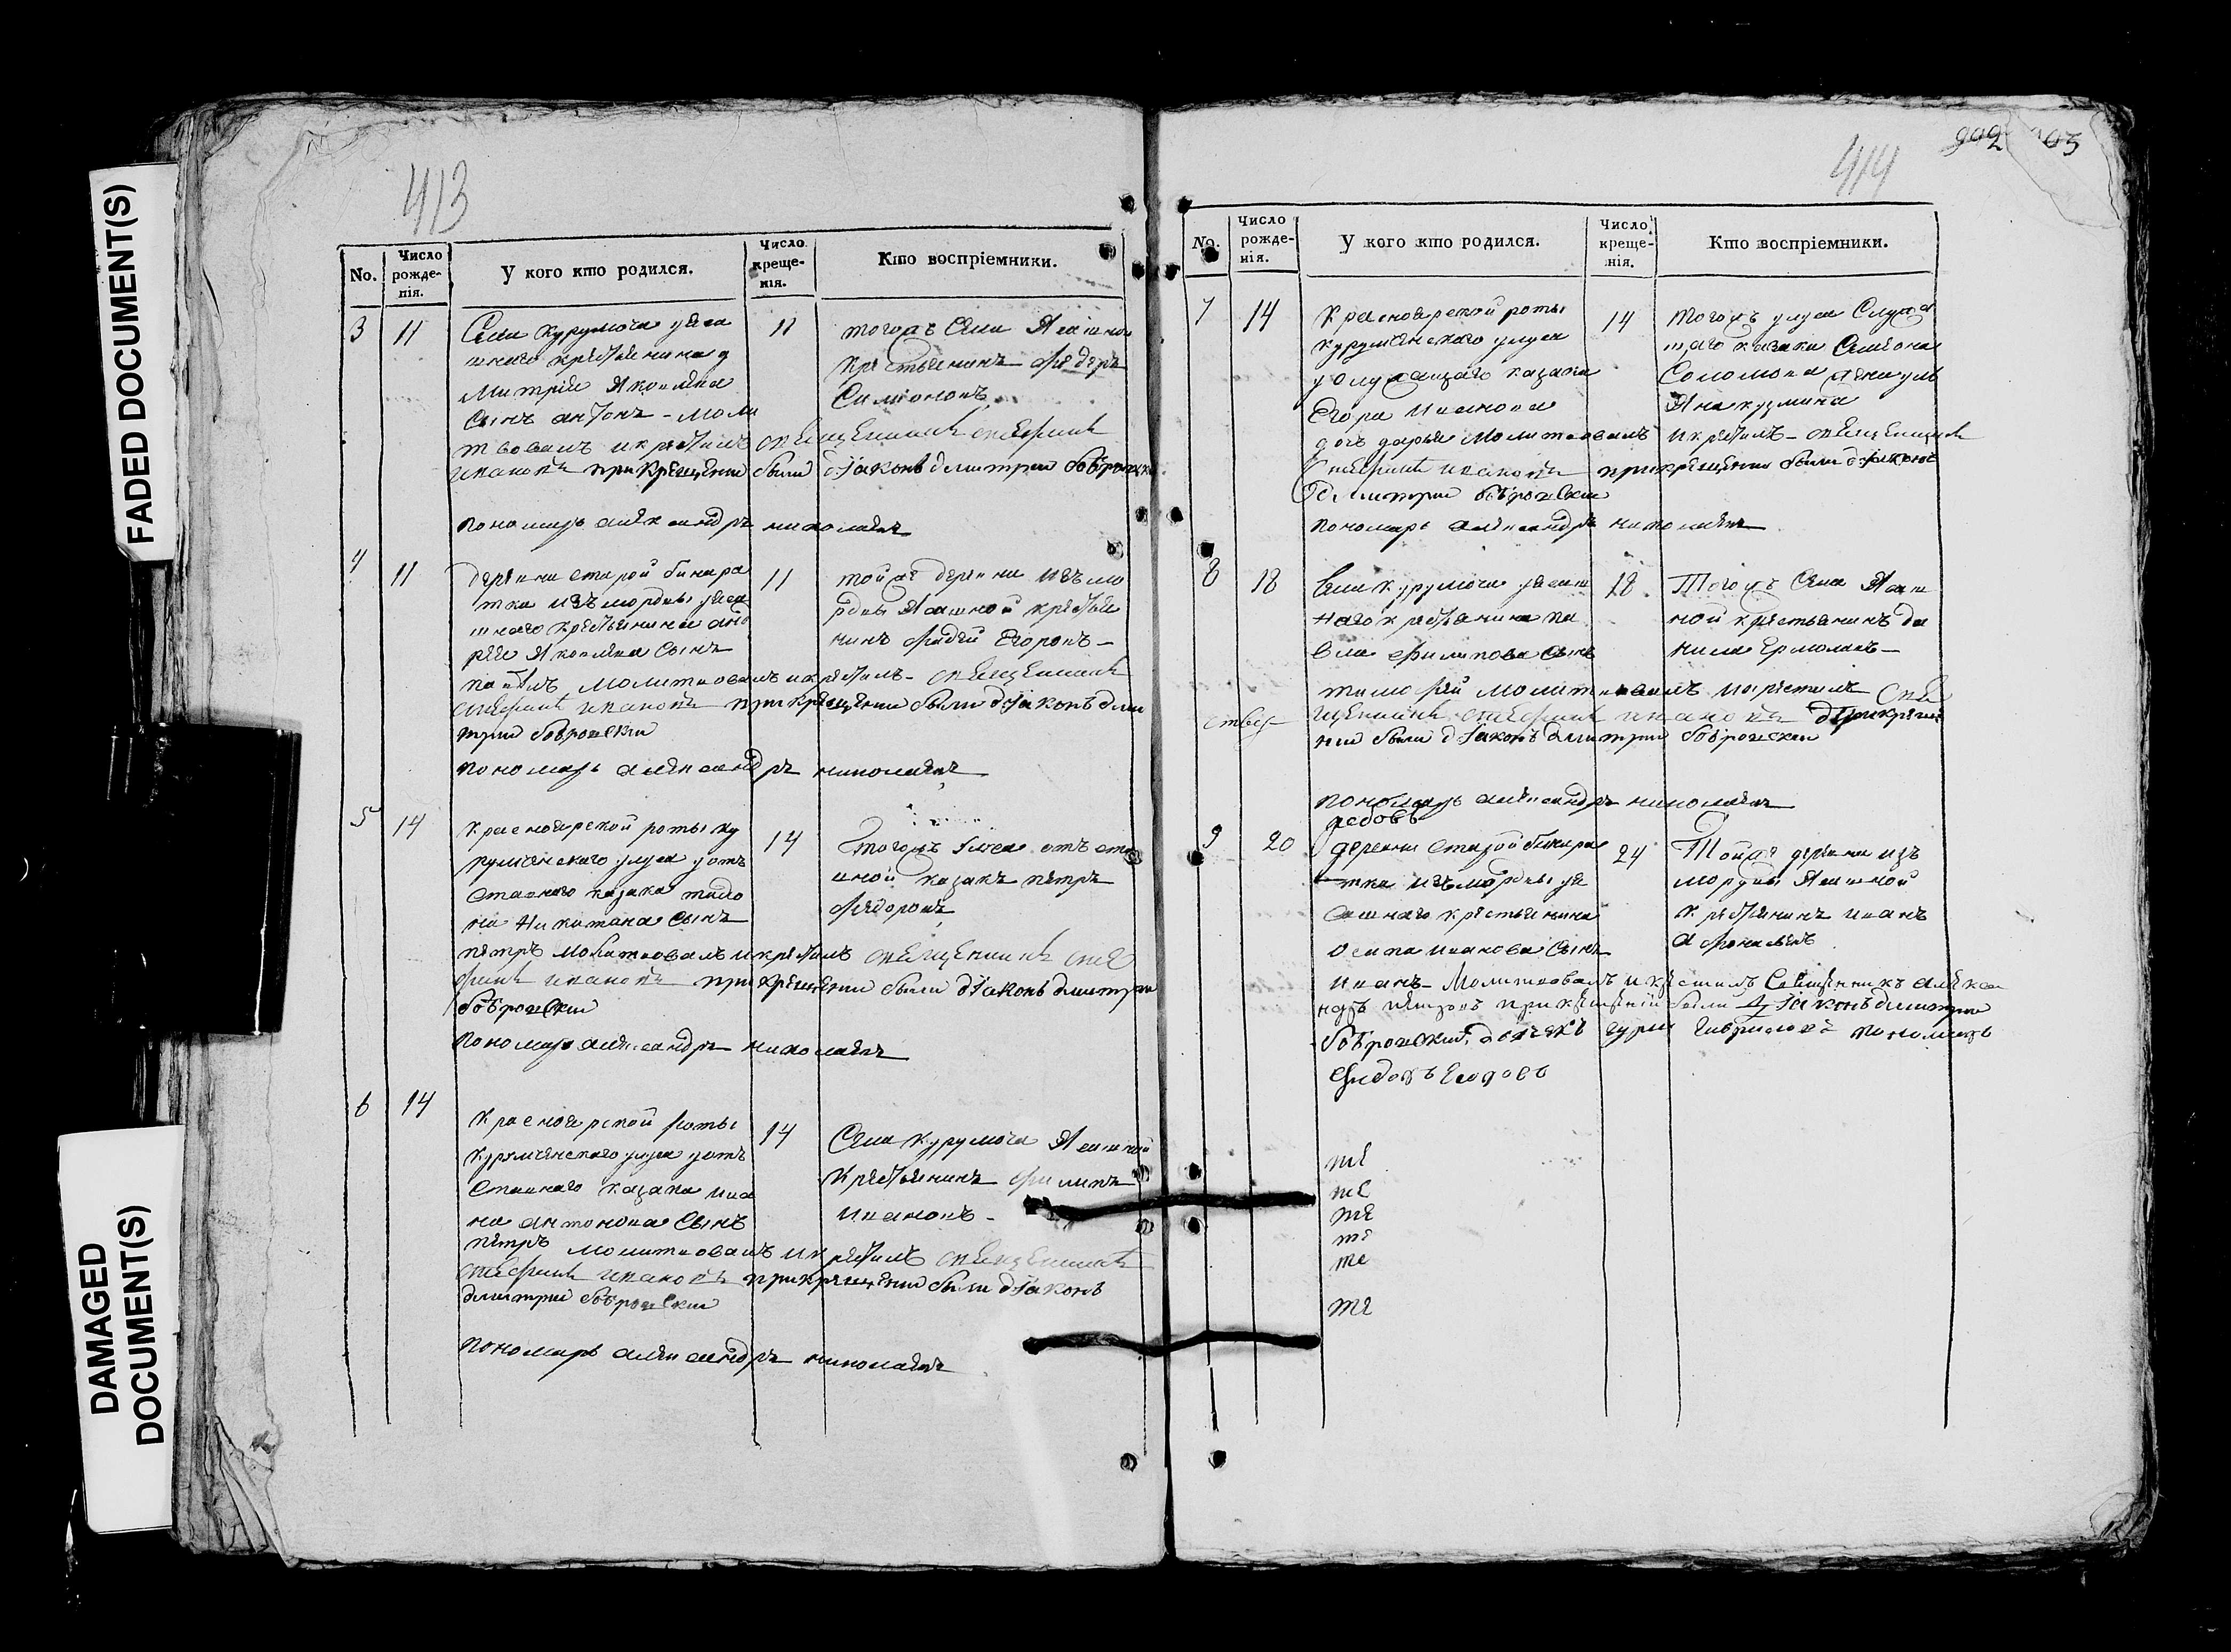 FADED DOCUMENT(S)
DAMAGED
DOCUMENT(S)
413
No.
Число
рожде-
нія.
У кого кто родился.
Число
креще-
нія.
Кто воспріемники.
3 11
Села Курумоча у яса
шнаго крестьянина д
митрия Яковлева
сынъ антонъ - моли
твовалъ и крестилъ священникъ стефанъ
ивановъ при крещении были діаконъ дмитрии бобровски
пономарь александръ николаевъ
11
тогожъ села Ясашной
крестьянинъ федеръ
Симионовъ
4 11
деревни старой бинара
тки изъ мордвы у яса
шнаго крестьянина анд
рея Яковлева сынъ
павелъ молитвовалъ и крестилъ - священникъ
стефанъ ивановъ при крещении были діаконъ дми
трии бобровски
пономарь александръ николаевъ
11
тойже деревни изъ мо
рдвы Ясашной крестья
нинъ фадей Егоровъ -
5 14
красноярской роты ку
румченскаго улуса у отъ
ставнаго казака
на Никитина сынъ
петръ молитвовалъ и крестилъ священникъ сте
фанъ ивановъ при крещении были діаконъ дмитрии
бобровски
пономарь александръ николаевъ
14
тогожъ улуса отъ ста
вной казакъ петръ
федоровъ
6 14
красноярской роты
курумченскаго улуса у отъ
ставнаго казака ива
на антонова сынъ
петръ молитвовалъ и крестилъ священникъ
стефанъ ивановъ при крещении были діаконъ
дмитрии бобровски
пономарь александръ николаевъ
14
Села курумоча Ясашной
крестьянинъ филипъ
ивановъ -
414
902
03
No.
Число
рожде-
нія.
У кого кто родился.
Число
креще-
нія.
Кто воспріемники.
7 14
красноярской роты
курумченскаго улуса
у служащаго казака
Егора иванова
дочь дарья молитвовалъ и крестилъ - священникъ
стефанъ ивановъ при крещении были діаконъ
дмитрии бобровски
пономарь александръ николаевъ
14
тогожъ улуса служа
щаго казака Семиона
Соломона жена уль
яна кузмина
8 18
села курумоча у ясаш
наго крестьянина па
вла филипова сынъ
тимофей молитвовалъ и крестилъ свя
щенникъ стефанъ ивановъ при креще
нии были діаконъ дмитрии бобровски
пономарь александръ николаевъ
18
Тогожъ села Ясаш
ной крестьянинъ да
нила Ермолаевъ -
9 20
деревни старой бинара
тки изъ мордвы у я
сашнаго крестьянина
осипа иванова сынъ
иванъ - молитвовалъ и крестилъ Священникъ алекса
ндръ петровъ при крещении были діаконъ дмитрии
бобровский, дьячекъ гурии гавриловъ пономарь
24
Тойже деревни изъ
мордвы Ясашной
крестьянинъ иванъ
афонасьевъ
те
те
те
те
те
те